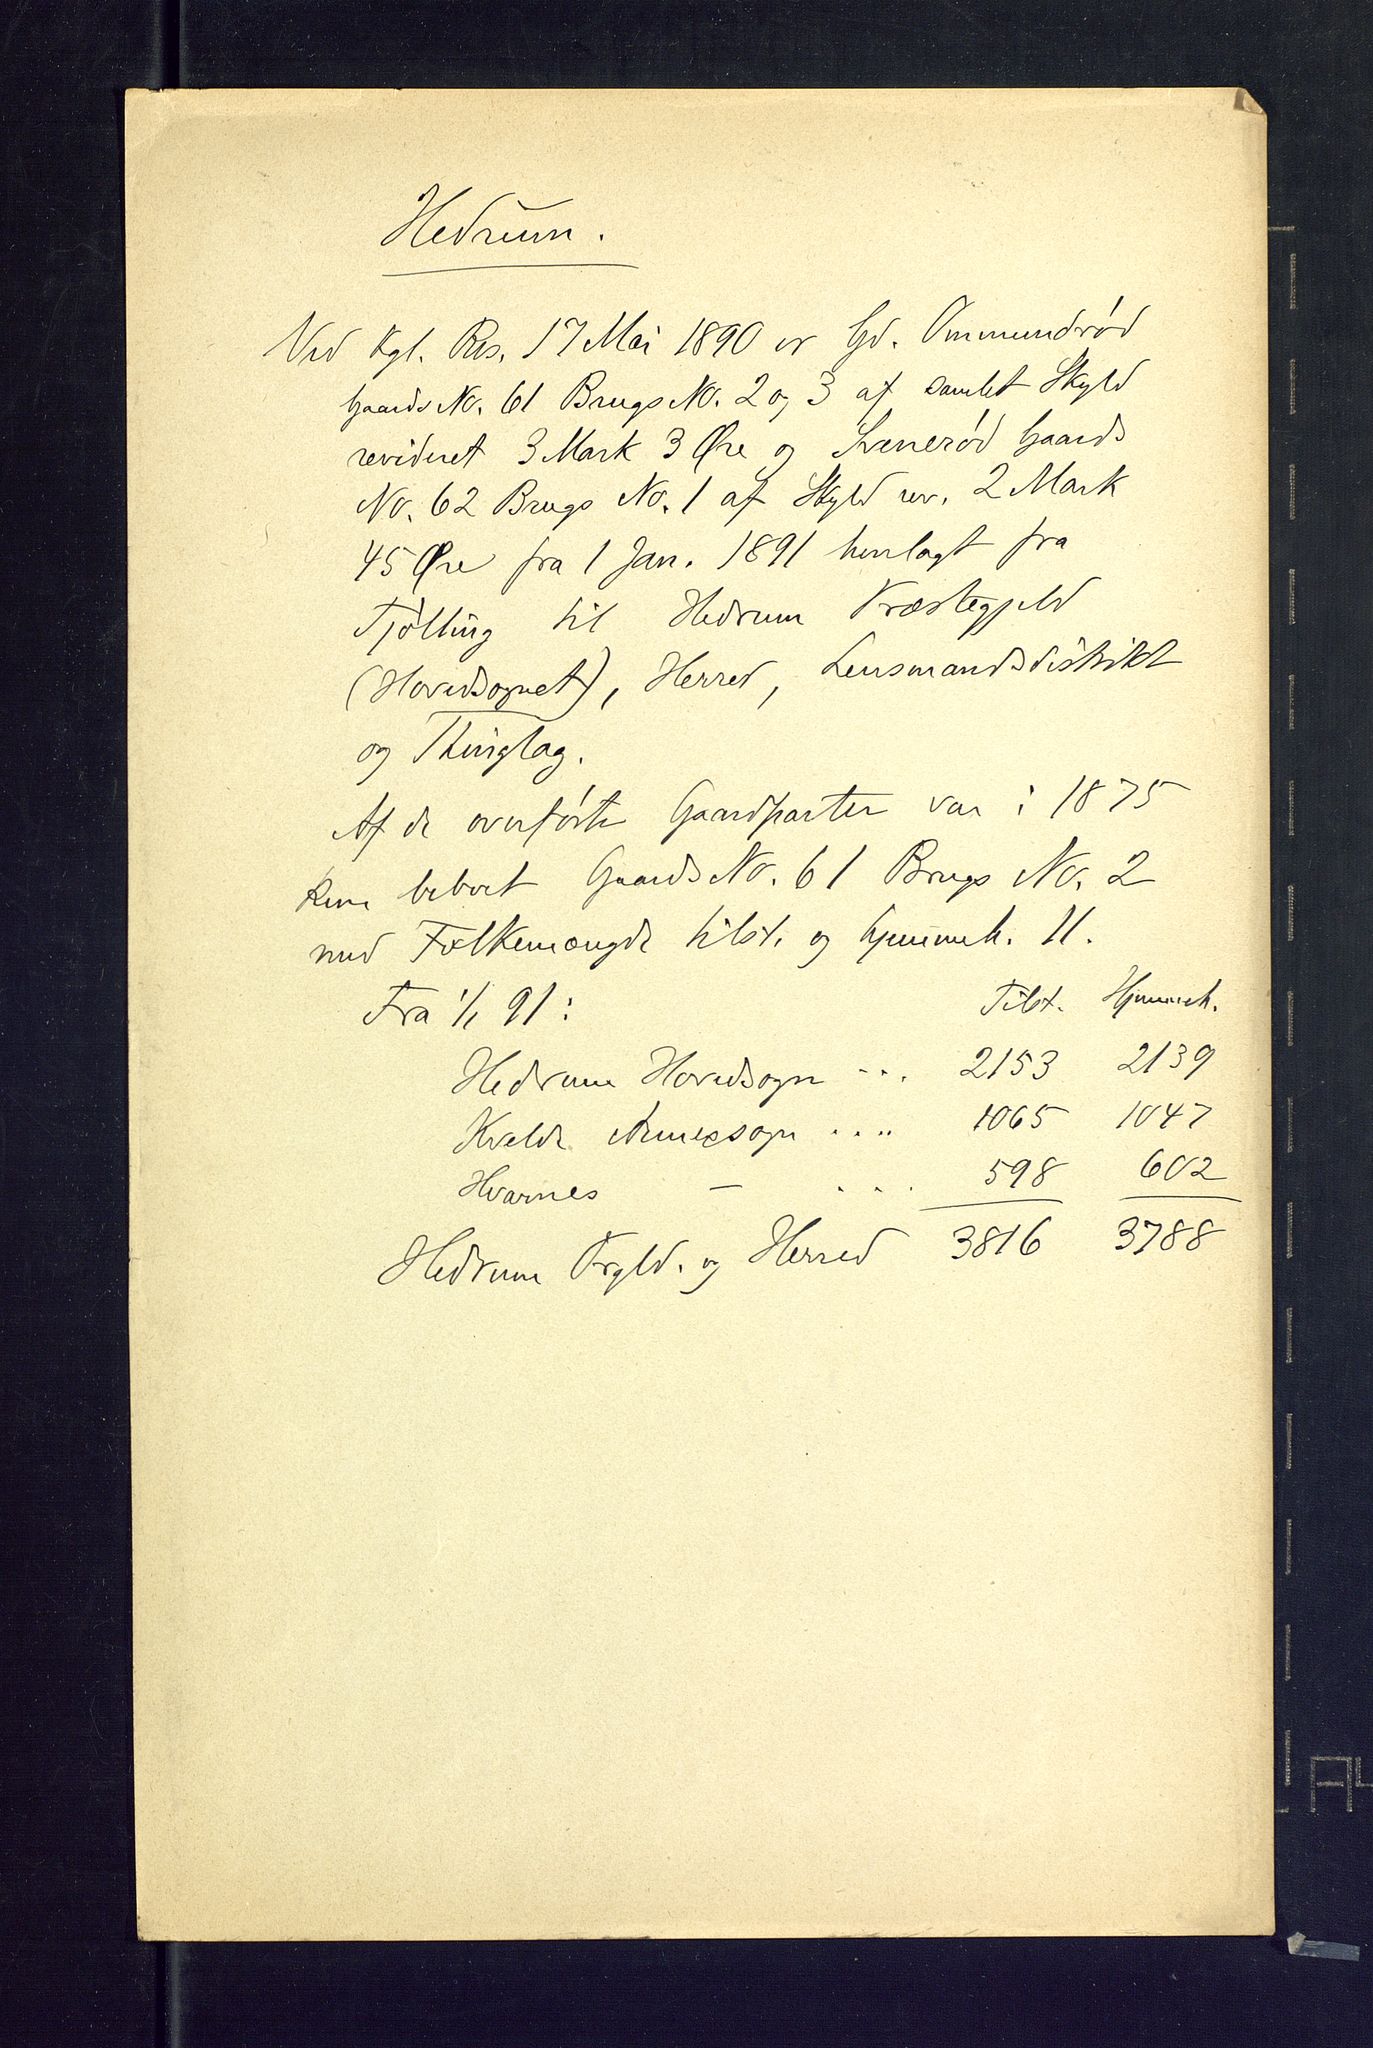 Hedrum.
Ved Kgl. Res. 17 Mai 1890 er Gd. Ommundrød
Gaards No. 61 Brugs No. 2 og 3 af samlet Skyld
revideret 3 Mark 3 Øre og Svenerød Gaards
No. 62 Brugs No. 1 af Skyld rev. 2 Mark
45 Øre fra 1 Jan. 1891 henlagt fra
Tjølling til Hedrum Præstegjeld
(Hovedsognet), Herred, Lensmandsdistrikt
og Thinglag.
Af de overførte Gaardparter var i 1875
kun beboet Gaards No. 61 Brugs No. 2
med Folkemængde tilst. og hjemmeh. 11.
Fra 1/1 91: Tilst. Hjemmeh.
Hedrum Hovedsogn ... 2153 2139
Kvelde Annexsogn .... 1065 1047
Hvarnes — ... 598 602
Hedrum Prgld. og Herred 3816 3788